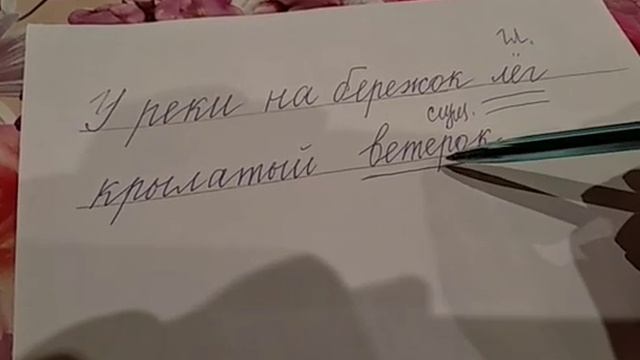 гл.
У реки на бережок лёг
сущ.
крылатый ветерок.